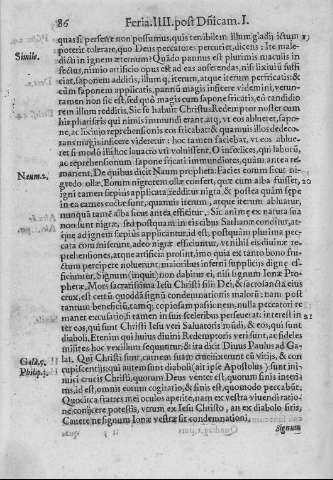 86 Feria.IIII.post Dñicam.I.
quasi persense non possumus, quis terribilem illum gladij ictum
poterit tolerare, quo Deus percatores percutiet, dicens: Ite male-
Simile. dicti in ignem æternum? Quādo pannus est plurimis maculis in
fectus, nimio artificio opus est ad eas auferendas, nisi lixiuiū suffi
ciat, saponem addis, illum q, iterum, atque iterum perfricatis: &
cùm saponem applicatis, pannū magis inficere videmini, verun-
tamen non sic est, sed quò magis cum sapone fricatis, eò candidio
rem illum redditis. Sic se habuit Christus Redemptor noster cum
his pharisæis qui nimis immundi erant. atq, vt eos ablueret, sapo-
ne, ac lixiuio reprehensionis eos fricabat: & quamuis illos dedeco-
rans magis inficere videretur: hoc tamen faciebat, vt eos ablue-
ret si modò illi hoc lauacro vti voluissent. O infœlices, qui labore,
ac reprehensionum sapone fricati immundiores, quàm antea re-
Naum.2. manent. De quibus dicit Naum propheta: Facies eorum sicut ni-
gredo ollæ. Eorum nigrorem ollæ confert, quæ cum alba fuisset,
igni tamen sæpius applicata, redditur nigra, & postea quàm sępe
in ea carnes coctæ sunt, quamuis iterum, atque iterum abluatur,
nunquā tamē alba sicut antea efficitur. Sic animę ex natura sua
non sunt nigræ, sed postquam in eis cibus Sathanæ conditur, at-
que ad ignem sæpius applicantur, id est, postquàm plurima pec-
cata commiserunt, adeo nigræ efficiuntur, vt nihil eis diuinæ re-
prehensiones, atque artificia prosint, imo quia ex tanto bono fru-
ctum percipere noluerunt, maioribus inferni supplicijs dignę ef-
ficiuntur. Signum (inquit) non dabitur ei, nisi signum Ionæ Pro-
phetæ. Mors sacratissima Iesu Christi filij Dei, & sacrosancta eius
crux, est certū quoddā signū condemnationis malorū: nam post
tantum beneficiū, tamq; copiosam passionem, nulla peccatori re
manet excusatio, si tamen in suis sceleribus perseuerat: interest in
ter eos, qui sunt Christi Iesu veri Saluatoris mūdi, & eos, qui sunt
diaboli. Etenim qui huius diuini Redemptoris veri sunt, ac fideles
milites hoc vexillum sequuntur, & ita dicit Diuus Paulus ad Ga-
Gala.5. lat. Qui Christi sunt, carnem suam crucifixerunt cū vitijs, & con
Philip.3. cupiscentijs: qui autem sunt diaboli (ait ipse Apostolus) sunt ini-
mici crucis Christi, quorum Deus venter est, quorum finis interi-
tus, id est, omnis eorum cogitatio, & finis est, quomodo peccabūt.
Quocirca fratres mei oculos aperite, nam ex vestra viuendi ratio-
ne conijcere potestis, vtrum ex Iesu Christo, an ex diabolo sitis.
Cauete ne signum Ionæ vestræ sit condemnationi.
Signum